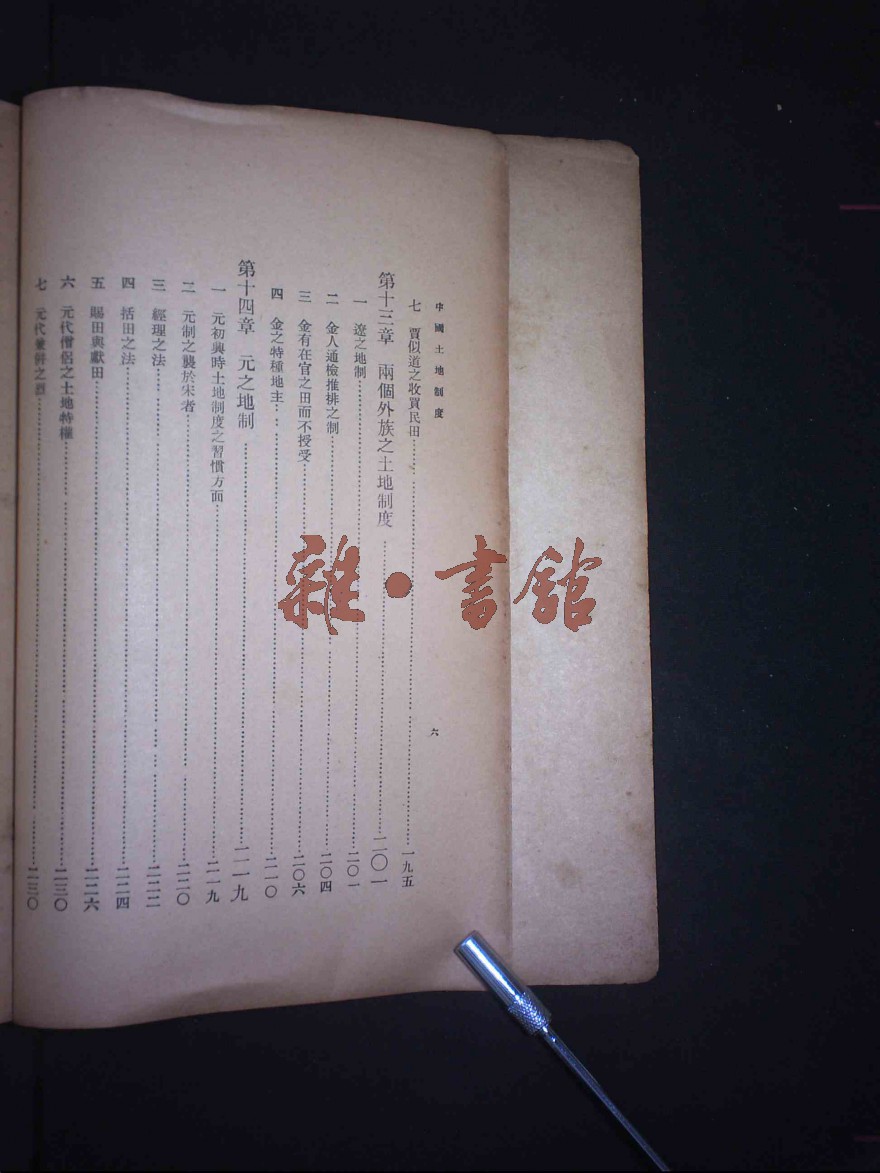 中國土地制度
六
七 賈似道之收買民田……一九五
第十三章 兩個外族之土地制度……二〇一
一 遼之地制……二〇一
二 金人通檢推排之制……二〇四
三 金有在官之田而不授受……二〇六
四 金之特種地主……二一〇
第十四章 元之地制……二一九
一 元初興時土地制度之習慣方面……二一九
二 元制之襲於宋者……二二〇
三 經理之法……二二二
四 括田之法……二二四
五 賜田與獻田……二二六
六 元代僧侶之土地特權……二三〇
七 元代兼併之烈……二三〇
雜·書館